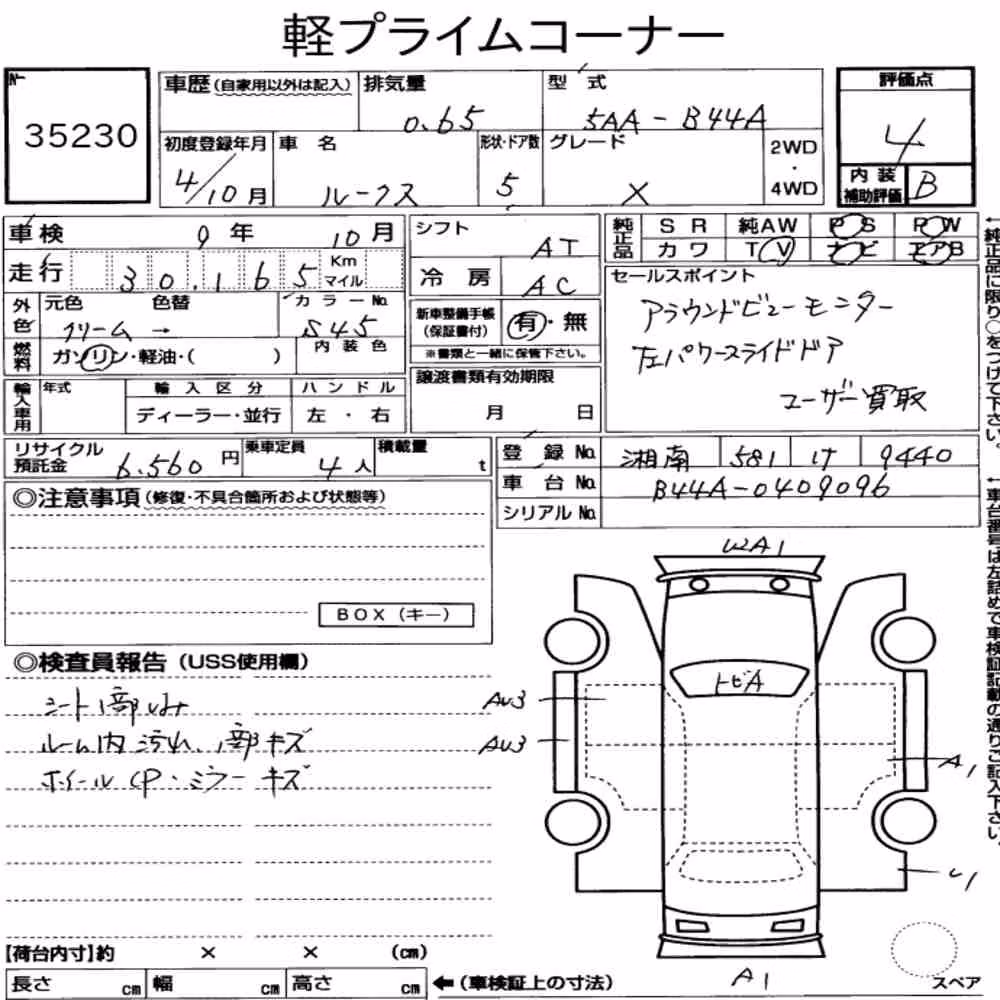 軽プライムコーナー
№ 35230
車歴(自家用以外は記入) 排気量 0.65 型式 5AA-B44A
評価点 4
初度登録年月 4/10月 車名 ルークス 形状・ドア数 5 グレード X 2WD・4WD
内装補助評価 B
車検 9年 10月
走行 30,165 Km マイル
外色 元色 クリーム → 色替 カラーNo. S45
燃料 ガソリン・軽油・( ) 内装色
輸入車用 年式 輸入区分 ディーラー・並行 ハンドル 左・右
シフト AT
冷房 AC
新車整備手帳(保証書付) 有・無
※書類と一緒に保管下さい。
譲渡書類有効期限
月 日
純正品 SR 純AW PS PW
カワ TV ナビ エアB
セールスポイント
アラウンドビューモニター
左パワースライドドア
ユーザー買取
←純正品に限り○をつけて下さい。
リサイクル預託金 6,560円 乗車定員 4人 積載量 t
登録No. 湘南 581 け 9440
車台No. B44A-0409096
シリアルNo.
←車台番号は左詰めで車検証記載の通りご記入下さい。
◎注意事項(修復・不具合箇所および状態等)
BOX(キー)
◎検査員報告(USS使用欄)
シート1部しみ
ルーム内汚れ、1部キズ
ホイールCP・ミラーキズ
WA1
トビA
AU3
AU3
A1
U1
A1
スペア
【荷台内寸】約 × × (cm)
長さ cm 幅 cm 高さ cm ←(車検証上の寸法)